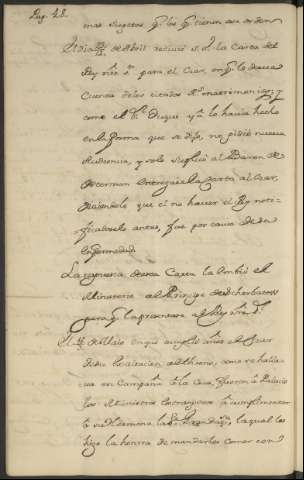 Pag. 28.
mas sugetos q.e los q.e tienen esa orden
El dia de Abril recivió S. E. la Carta del
Rey nro. s.r para el Czar, en q.e le dava
Cuenta de los citados matrimonios; y
como el Duque ya lo havia hecho
en la forma que se dijo, no pidió nueva
Audiencia, y solo suplicó al Baron de
Osterman entregase la carta al Czar,
diciendole que el no haver el Rey noti-
ficadoselo antes, fue por causa de su
enfermedad.
La respuesta de esta Carta la embió el
Ministerio al Principe de Scherbatow
para q.e la presentara al Rey nro. s.r
El de Maio en que cumplió años el Czar
de su exaltacion al throno, como se halla-
va en Campaña a la Caza, fueron a Palacio
los Ministros estrangeros a cumplimentar
a su Hermana la Gran Duq.sa, la qual les
hizo la honra de mandarles comer con